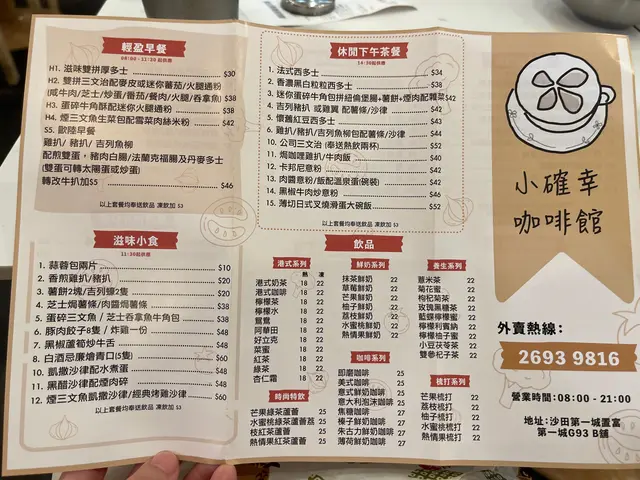 輕盈早餐
08:00 - 11:30起供應
H1. 滋味雙拼厚多士 $30
H2. 雙拼三文治配麥皮或迷你蕃茄/火腿通粉
(咸牛肉/芝士/炒蛋/番茄/餐肉/火腿/吞拿魚) $38
H3. 蛋碎牛角酥配迷你火腿通粉 $38
H4. 煙三文魚生菜包配雪菜肉絲米粉 $42
S5. 歐陸早餐
雞扒/ 豬扒/ 吉列魚柳
配煎雙蛋, 豬肉白腸/法蘭克福腸及丹麥多士
(雙蛋可轉太陽蛋或炒蛋)
轉改牛扒加$5 $46
以上套餐均奉送飲品 凍飲加 $3
滋味小食
11:30起供應
1. 蒜蓉包兩片 $10
2. 香煎雞扒/豬扒 $20
3. 薯餅2塊/吉列蠔2隻 $20
4. 芝士焗薯條/肉醬焗薯條 $38
5. 蛋碎三文魚 / 芝士吞拿魚牛角包 $38
6. 豚肉餃子8隻 / 炸雞一份 $48
7. 黑椒蘆筍炒牛舌 $48
8. 白酒忌廉燴青口(5隻) $60
10. 凱撒沙律配水煮蛋 $48
11. 黑醋沙律配煙肉碎 $48
12. 煙三文魚凱撒沙律/經典烤雞沙律 $60
以上套餐均奉送飲品 凍飲加 $3
休閒下午茶餐
14:30起供應
1. 法式西多士 $34
2. 香濃黑白粒粒西多士 $38
3. 迷你蛋碎牛角包拼紐倫堡腸+薯餅+煙肉配雜菜 $42
4. 吉列豬扒 或雞翼 配薯條/沙律 $44
5. 懷舊紅豆西多士 $43
6. 雞扒/豬扒/吉列魚柳包配薯條/沙律 $44
10. 公司三文治 (奉送熱飲兩杯) $52
11. 焗咖哩雞扒/牛肉飯 $40
12. 卡邦尼意粉 $40
13. 肉醬意粉/飯配溫泉蛋(碗裝) $42
14. 黑椒牛肉炒意粉 $46
15. 薄切日式叉燒滑蛋大碗飯 $52
以上套餐均奉送飲品 凍飲加 $3
飲品
港式系列
熱 凍
港式奶茶 18 22
港式咖啡 18 22
檸檬茶 18 22
檸檬水 18 22
鴛鴦 18 22
阿華田 18 22
好立克 18 22
菜蜜 18 22
紅茶 18 22
綠茶 18 22
杏仁霜 18 22
時尚特飲
芒果綠茶蘆薈 25
水蜜桃綠茶蘆薈荔 25
枝紅茶蘆薈 25
熱情果紅茶蘆薈 25
鮮奶系列
抹茶鮮奶 22
草莓鮮奶 22
芒果鮮奶 22
柚子鮮奶 22
荔枝鮮奶 22
水蜜桃鮮奶 22
熱情果鮮奶 22
咖啡系列
即磨咖啡 25
美式咖啡 25
意式鮮奶咖啡 25
意大利泡沫咖啡 25
焦糖咖啡 27
榛子鮮奶咖啡 27
朱古力鮮奶咖啡 27
薄荷鮮奶咖啡 27
養生系列
薏米茶 22
菊花蜜 22
枸杞菊茶 22
玫瑰黑糖茶 22
藍蝶檸檬蜜 22
檸檬利賓納 22
檸檬柚子蜜 22
小豆茯苓茶 22
雙參杞子茶 22
梳打系列
芒果梳打 22
荔枝梳打 22
柚子梳打 22
水蜜桃梳打 22
熱情果梳打 22
小確幸
咖啡館
外賣熱線:
2693 9816
營業時間:08:00 - 21:00
地址:沙田第一城置富
第一城G93 B舖